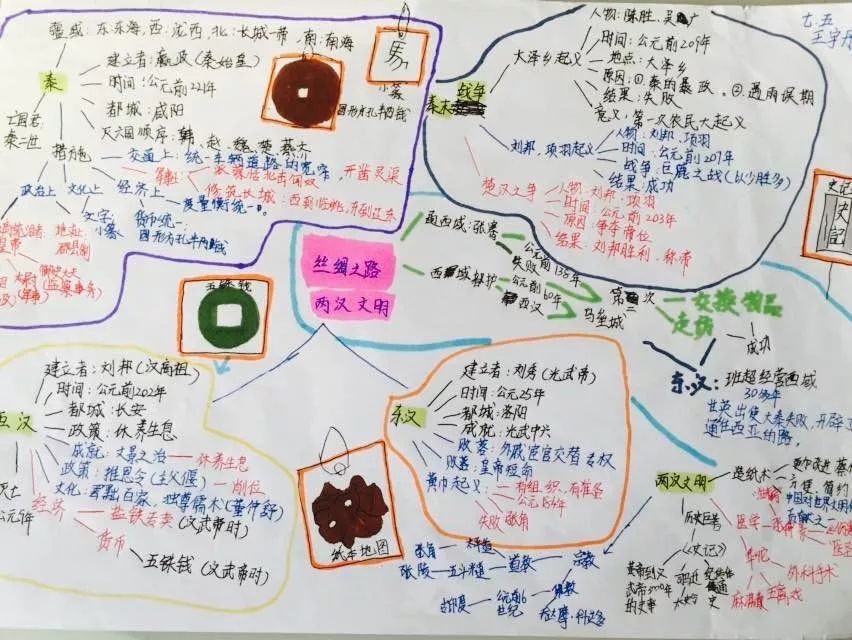 七.五
疆域:东东海,西:沈西,北:长城一带,南:南海
秦
建立者:嬴政(秦始皇)
时间:公元前221年
都城:咸阳
灭六国顺序:韩、赵、魏、楚、燕、齐
亡国君:
秦二世
措施
交通上:统一车辆道路的宽窄,开凿灵渠
军事上
修筑长城:西到临洮,东到辽东
政治上
文化上
经济上
度量衡统一。
文字:
小篆
货币统一
圆形方孔半两钱
小篆
圆形方孔半两钱
战争
秦末
大泽乡起义
人物:陈胜、吴广
时间:公元前209年
地点:大泽乡
原因:①秦的暴政。②遇雨误期
结果:失败
意义:第一次农民大起义
刘邦,项羽起义
人物:刘邦,项羽
时间:公元前207年
战争:巨鹿之战(以少胜多)
结果:成功
楚汉之争
人物:刘邦,项羽
时间:公元前203年
原因:争夺帝位
结果:刘邦胜利,称帝
史记
史记
丝绸之路
两汉文明
通西域:张骞
公元前138年
失败
西域都护
公元前60年
西汉
第二次
马皇城
交换物品
成功
东汉:班超经营西域
30多年
甘英出使大秦失败,开辟了
通往西亚的路。
五铢钱
西汉
建立者:刘邦(汉高祖)
时间:公元前202年
都城:长安
政策:休养生息
成就:文景之治——休养生息
政策:推恩令(主父偃)——削位
文化:罢黜百家,独尊儒术(董仲舒)
经济——盐铁专卖(汉武帝时)
货币
五铢钱(汉武帝时)
灭亡
公元9年
纸本地图
东汉
建立者:刘秀(光武帝)
时间:公元25年
都城:洛阳
成就:光武中兴
败落:外戚宦官交替专权
败落:皇帝短命
黄巾起义:有组织,有准备
公元184年
失败 张角
张角
太平道
张陵
五斗米道
道教
宗教
佛教
古印度
公元前6
世纪
两汉文明
造纸术
改进 蔡伦
方便,简约
中国对世界文明的
贡献之一
医学
华佗
外科手术
麻沸散
五禽戏
历史巨著
《史记》
司马迁
纪传体
通
史
黄帝到汉
武帝3000年
的史事